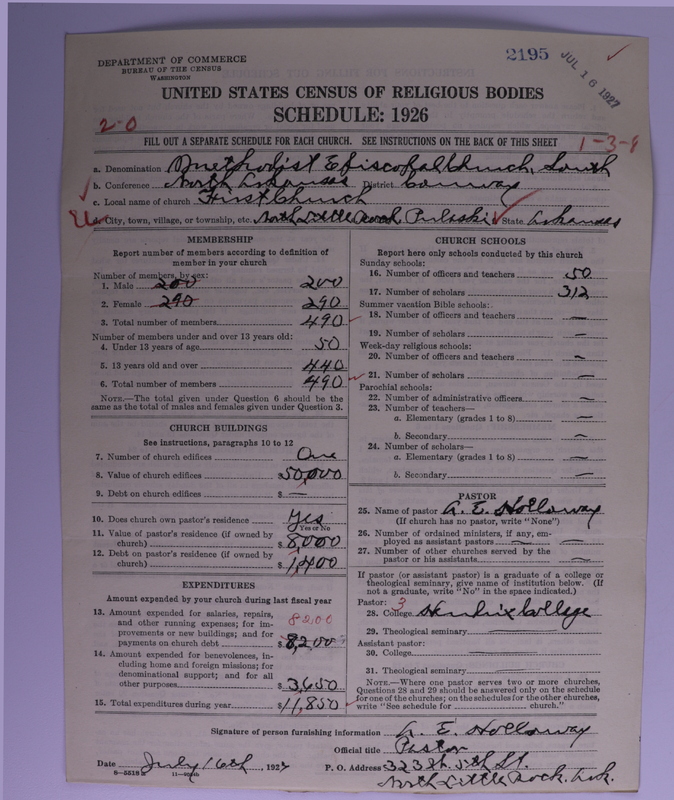 DEPARTMENT OF COMMERCE
BUREAU OF THE CENSUS
WASHINGTON
2195
JUL 16 1927
UNITED STATES CENSUS OF RELIGIOUS BODIES
SCHEDULE: 1926
2-0
FILL OUT A SEPARATE SCHEDULE FOR EACH CHURCH. SEE INSTRUCTIONS ON THE BACK OF THIS SHEET
1-3-8
a. Denomination Methodist Episcopal Church, South
b. Conference North Arkansas District Conway
c. Local name of church First Church
d. City, town, village, or township, etc. North Little Rock Pulaski State Arkansas
MEMBERSHIP
Report number of members according to definition of
member in your church
Number of members, by sex:
1. Male 200 200
2. Female 290 290
3. Total number of members 490
Number of members under and over 13 years old:
4. Under 13 years of age 50
5. 13 years old and over 440
6. Total number of members 490
NOTE.—The total given under Question 6 should be the
same as the total of males and females given under Question 3.
CHURCH BUILDINGS
See instructions, paragraphs 10 to 12
7. Number of church edifices One
8. Value of church edifices $50,000
9. Debt on church edifices $ —
10. Does church own pastor's residence Yes
Yes or No
11. Value of pastor's residence (if owned by
church) $8000
12. Debt on pastor's residence (if owned by
church) $1,400
EXPENDITURES
Amount expended by your church during last fiscal year
13. Amount expended for salaries, repairs,
and other running expenses; for im-
provements or new buildings; and for
payments on church debt $8,200
8200
14. Amount expended for benevolences, in-
cluding home and foreign missions; for
denominational support; and for all
other purposes $3,650
15. Total expenditures during year $11,850
CHURCH SCHOOLS
Report here only schools conducted by this church
Sunday schools:
16. Number of officers and teachers 50
17. Number of scholars 312
Summer vacation Bible schools:
18. Number of officers and teachers —
19. Number of scholars —
Week-day religious schools:
20. Number of officers and teachers —
21. Number of scholars —
Parochial schools:
22. Number of administrative officers —
23. Number of teachers—
a. Elementary (grades 1 to 8) —
b. Secondary —
24. Number of scholars—
a. Elementary (grades 1 to 8) —
b. Secondary —
PASTOR
25. Name of pastor A. E. Holloway
(If church has no pastor, write "None")
26. Number of ordained ministers, if any, em-
ployed as assistant pastors —
27. Number of other churches served by the
pastor or his assistants —
If pastor (or assistant pastor) is a graduate of a college or
theological seminary, give name of institution below. (If
not a graduate, write "No" in the space indicated.)
Pastor: 3
28. College Hendrix College
29. Theological seminary —
Assistant pastor:
30. College —
31. Theological seminary —
NOTE.—Where one pastor serves two or more churches,
Questions 28 and 29 should be answered only on the schedule
for one of the churches; on the schedules for the other churches,
write "See schedule for church."
Signature of person furnishing information A. E. Holloway
Official title Pastor
Date July 16th, 1927 P. O. Address 323 W. 5th St.
North Little Rock, Ark.